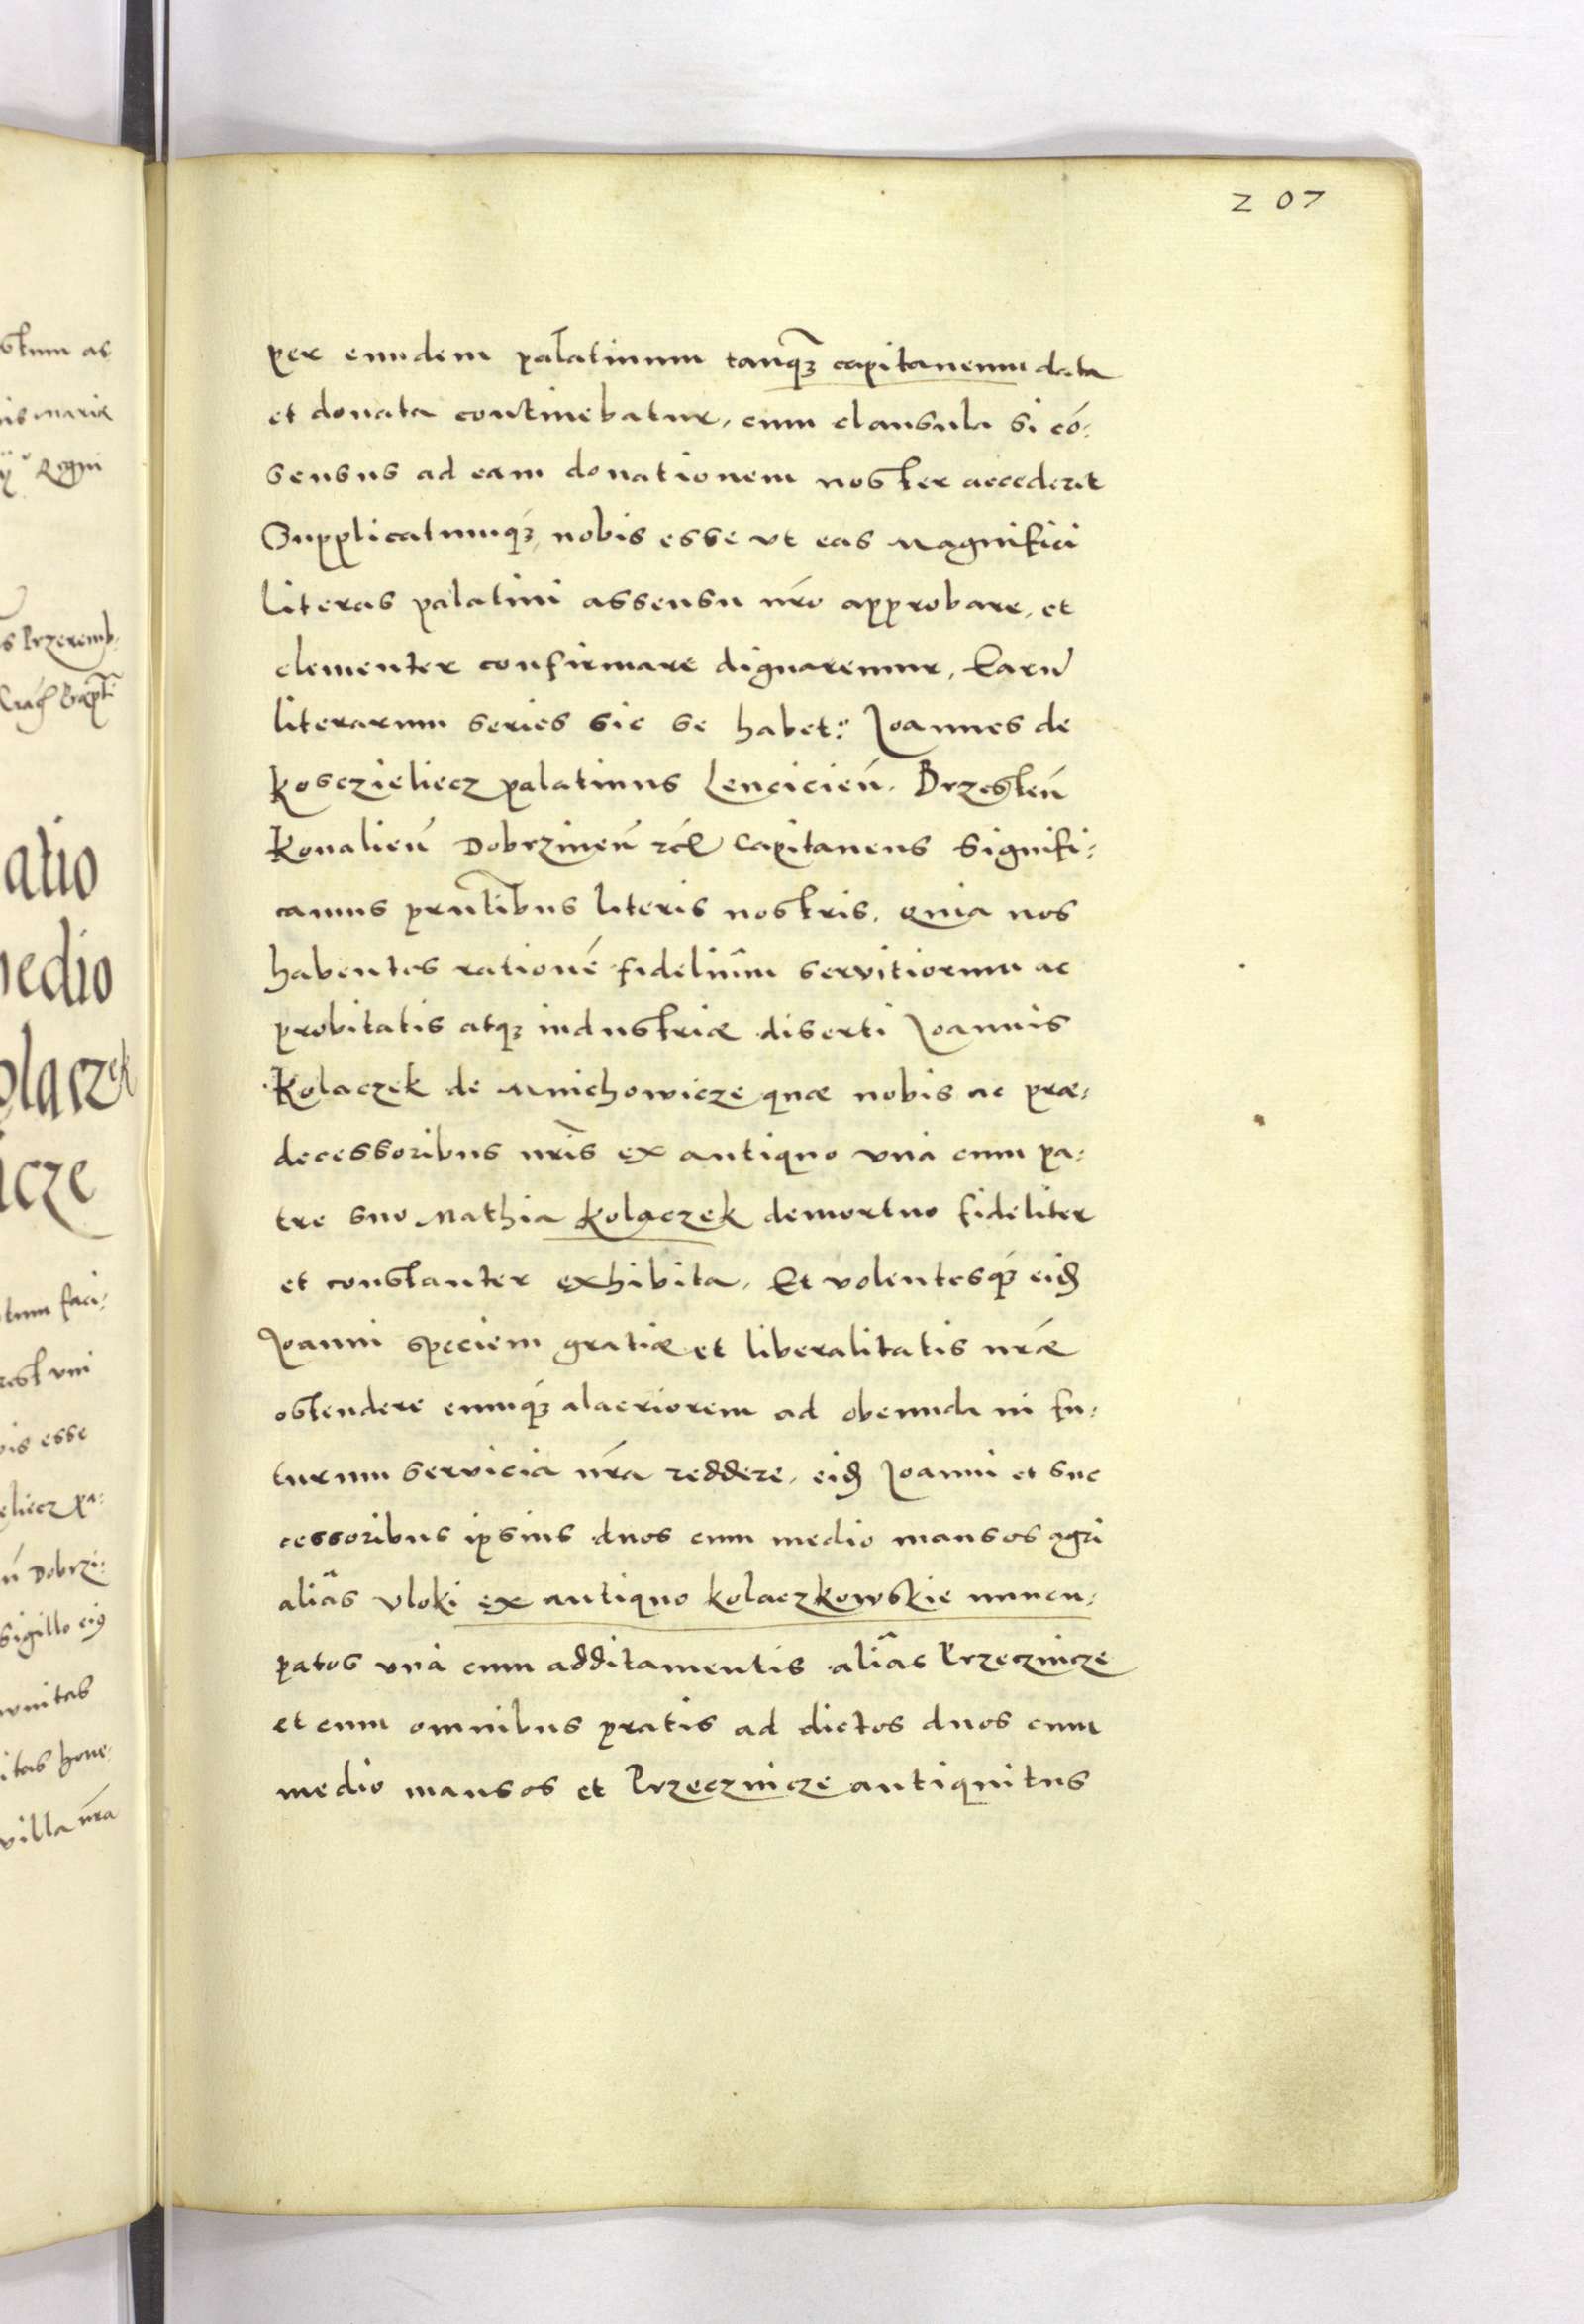 207
per eundem palatinum tanq̃ꝫ capitaneum data
et donata continebatur, cum clausula si cō-
sensus ad eam donationem noster accederit
Supplicatumqꝫ nobis esse vt eas Magnifici
literas palatini assensu nr̄o approbare, et
clementer confirmare dignaremur, Earū
literarum series sic se habet: Joannes de
Kosczieliecz palatinus Lencicień. Brzesteń
Koualień Dobrzineń etc̄ Capitaneus Signifi-
camus prn̄tibus literis nostris, quia nos
habentes rationē fidelium servitiorum ac
probitatis atqꝫ industriæ diserti Joannis
Kolaczek de Mnichowicze quæ nobis ac præ-
decessoribus nr̄is ex antiquo vnà cum pa-
tre suo Mathia Kolaczek demortuo fideliter
et constanter exhibita, Et volentesqꝫ eidꝫ
Joanni speciem gratiæ et liberalitatis nr̄æ
ostendere eumqꝫ alacriorem ad obeunda in fu-
turum servicia nr̄a reddere, eidꝫ Joanni et suc
cessoribus ipsius duos cum medio mansos agri
aliâs vloki ex antiquo kolaczkowskie nuncu-
patos vnà cum additamentis aliâs Przecznicze
et cum omnibus pratis ad dictos duos cum
medio mansos et Przecznicze antiquitus